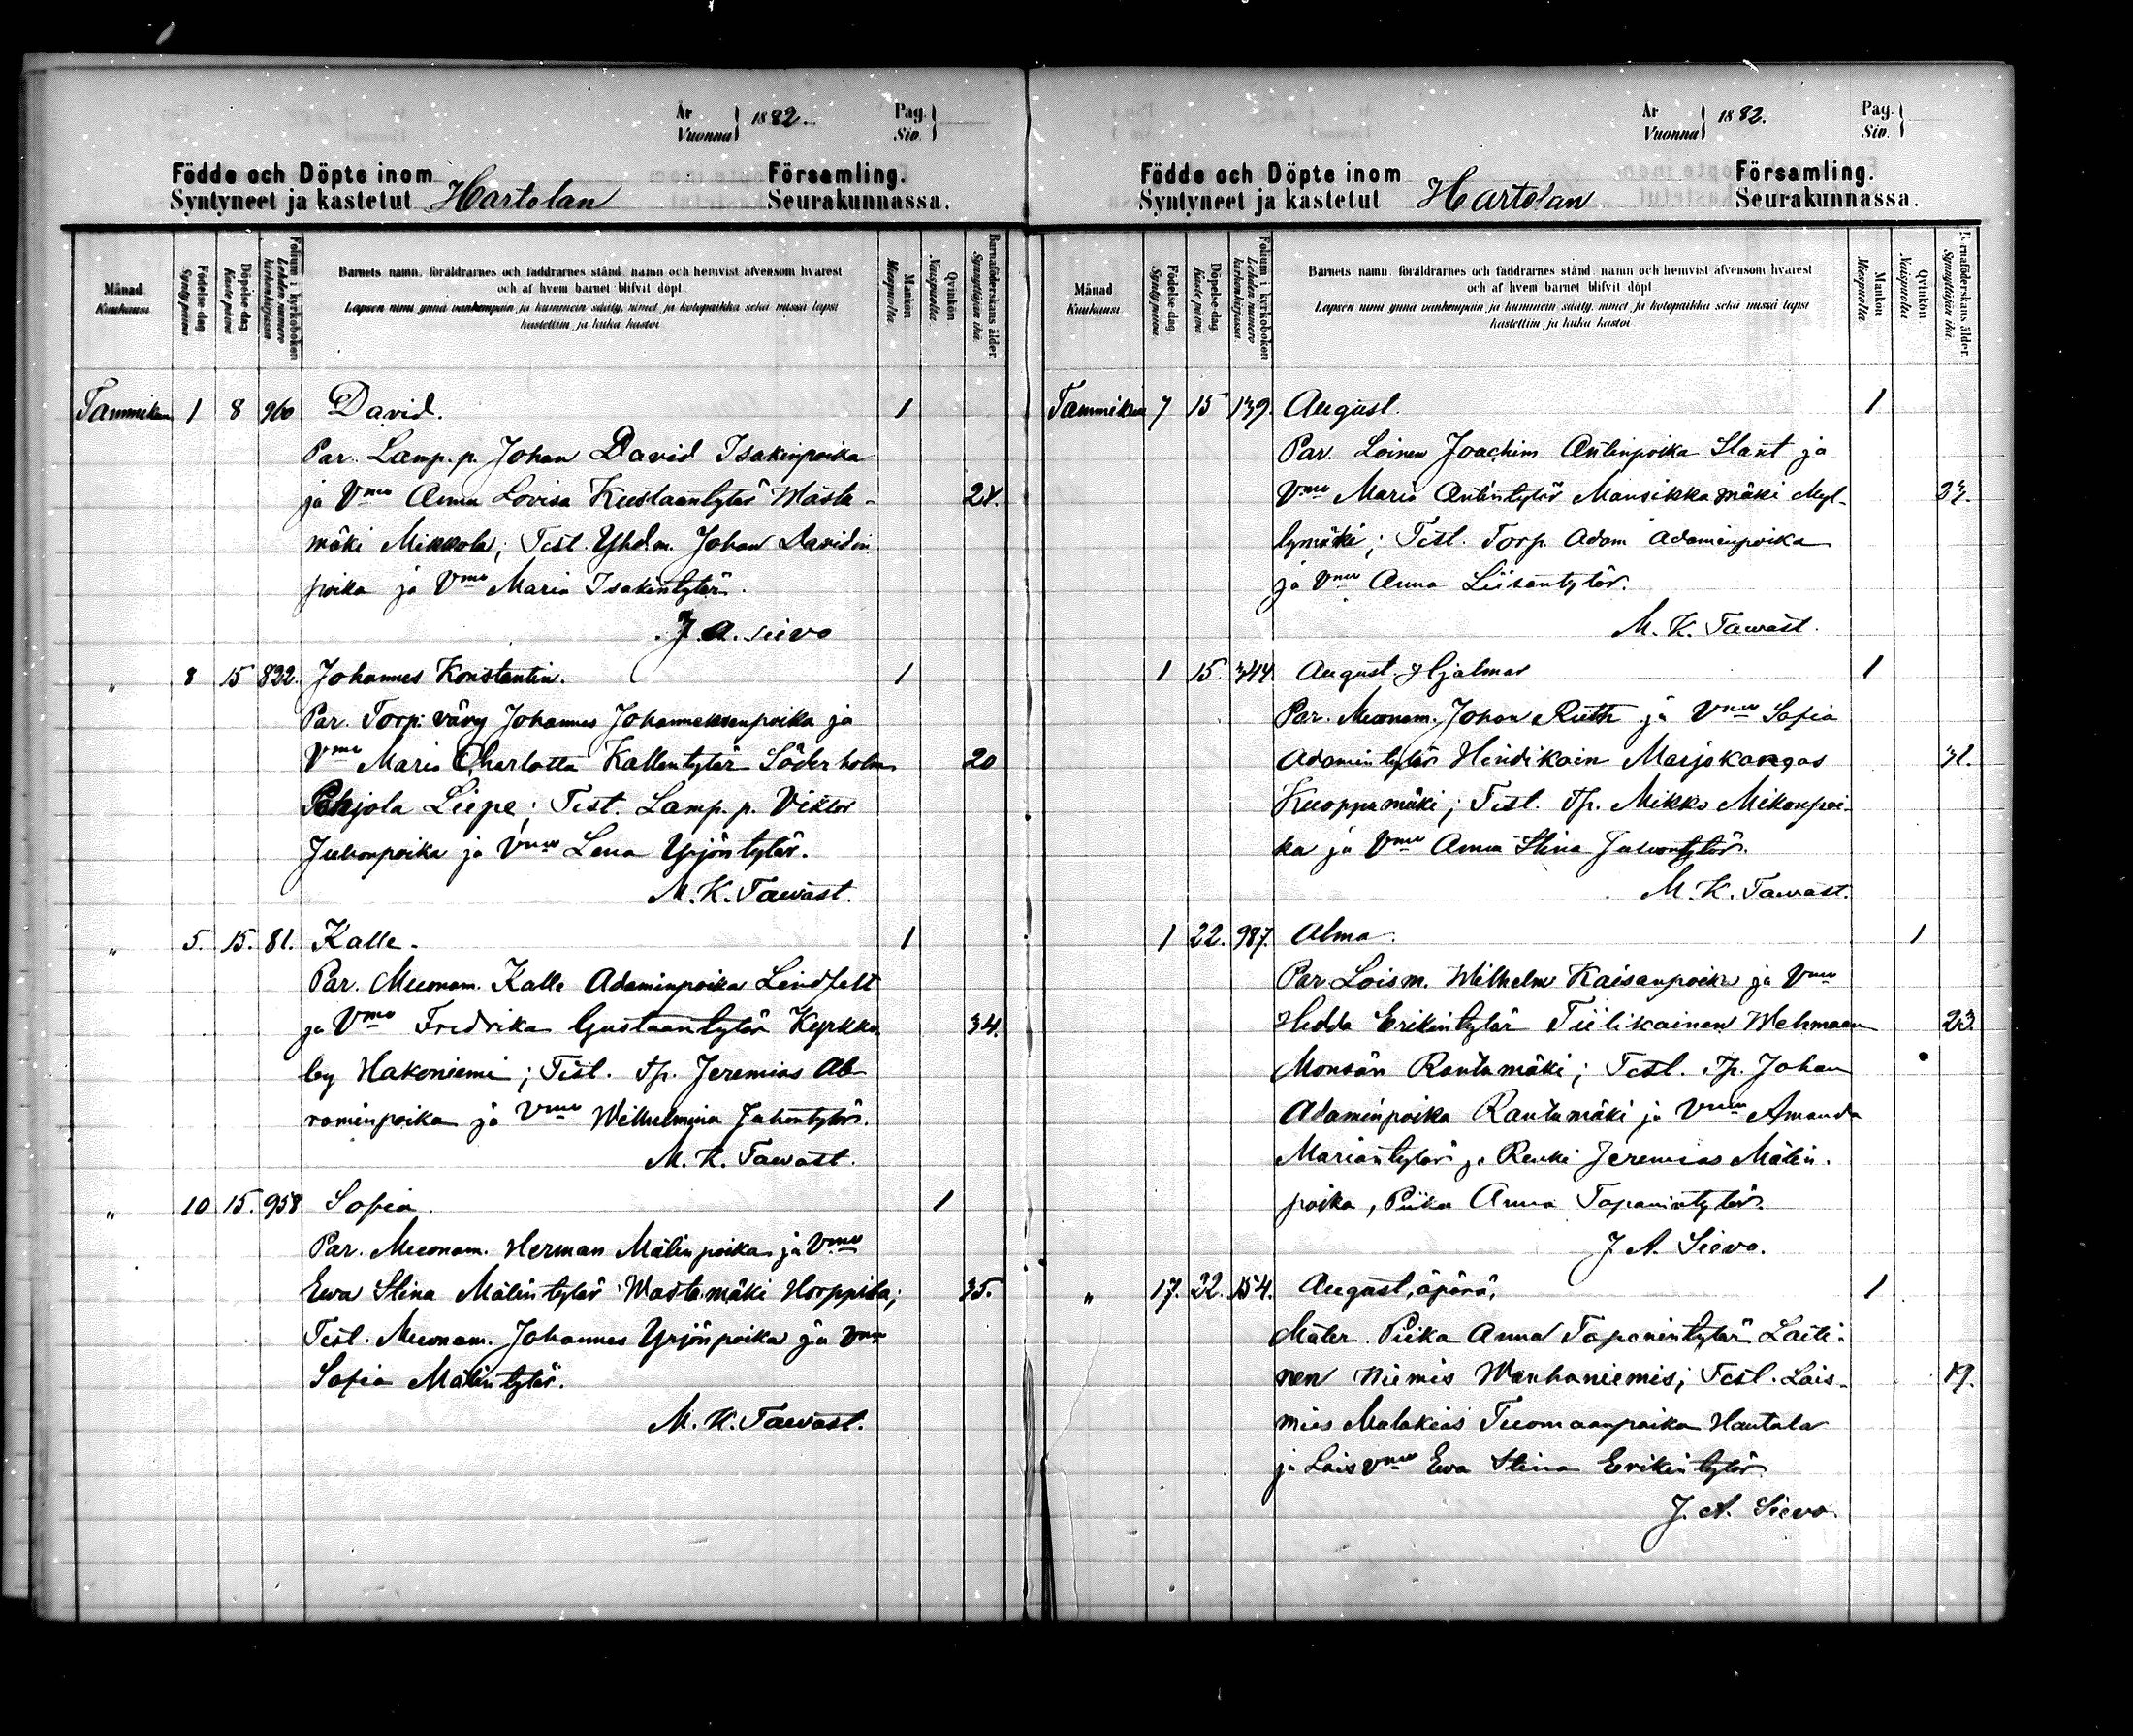 År
Vuonna 1882.
Pag.
Siv.
Födde och Döpte inom Församling.
Syntyneet ja kastetut Hartolan Seurakunnassa.
Månad
Kuukausi
Födelse-dag
Synty päivä
Döpelse-dag
Kaste päivä
Folium i kyrkoboken
Lehden numero kirkonkirjassa
Barnets namn, föräldrarnes och faddrarnes stånd, namn och hemvist äfvensom hvarest
och af hvem barnet blifvit döpt
Lapsen nimi ynnä vanhempain ja kummein sääty, nimet ja kotopaikka sekä missä lapsi
kastettiin ja kuka kastoi
Mankön
Miespuolia
Qvinkön
Naispuolia
Barnaföderskans ålder
Synnyttäjän ikä
Tammikuu 1 8 960 David. 1
Par. Lamp. p. Johan David Isakinpoika
ja Vmo Anna Lovisa Kustaantytär Wasta- 24.
mäki Mikkola; Test. Yhd.m. Johan Davidin
poika ja Vmo Maria Isakintytär.
J. A. Sievo
" 8 15 822. Johannes Konstantin. 1
Par. Torp. vävy Johannes Johanneksenpoika ja
Vmo Maria Charlotta Kallentytär Söderholm 20
Pohjola Liepe; Test. Lamp. p. Viktor
Juhonpoika ja Vmo Lena Yrjöntytär.
M. K. Tawast.
" 5. 15. 81. Kalle. 1
Par. Muonam. Kalle Adaminpoika Lindfelt
ja Vmo Fredrika Gustaantytär Kyrkko- 34.
by Hakoniemi; Test. Tp. Jeremias Ab-
raminpoika ja Vmo Wilhelmina Juhontytär.
M. K. Tawast.
" 10 15. 958 Sofia. 1
Par. Muonam. Herman Mälinpoika ja Vmo
Ewa Stina Mälintytär Wastamäki Horppila; 35.
Test. Muonam. Johannes Yrjönpoika ja Vmo
Sofia Mälintytär.
M. K. Tawast.
År
Vuonna 1882.
Pag.
Siv.
Födde och Döpte inom Församling.
Syntyneet ja kastetut Hartolan Seurakunnassa.
Månad
Kuukausi
Födelse-dag
Synty päivä
Döpelse-dag
Kaste päivä
Folium i kyrkoboken
Lehden numero kirkonkirjassa
Barnets namn, föräldrarnes och faddrarnes stånd, namn och hemvist äfvensom hvarest
och af hvem barnet blifvit döpt
Lapsen nimi ynnä vanhempain ja kummein sääty, nimet ja kotopaikka sekä missä lapsi
kastettiin ja kuka kastoi
Mankön
Miespuolia
Qvinkön
Naispuolia
Barnaföderskans ålder
Synnyttäjän ikä
Tammikuu 7 15 139. August. 1
Par. Loinen Joachim Antinpoika Slant ja
Vmo Maria Antintytär Mansikkamäki Myl-
lymäki; Test. Torp. Adam Adaminpoika
ja Vmo Anna Liisantytär.
M. K. Tawast.
1 15. 344. August Hjalmar 1
Par. Muonam. Johan Ruth ja Vmo Sofia
Adamintytär Hindikain Marjokangas 31.
Kuoppamäki; Test. Tp. Mikko Mikonpoi-
ka ja Vmo Anna Stina Juhontytär.
M. K. Tawast.
1 22. 987. Alma. 1
Par. Lois m. Wilhelm Kaisanpoika ja Vmo
Hedda Erikintytär Tiilikainen Wehmaan 23.
Monsän Rautamäki; Test. Tp. Johan
Adaminpoika Rautamäki ja Vmo Amanda
Mariantytär ja Renki Jeremias Mälin-
poika, Piika Anna Tapanintytär.
J. A. Sievo.
" 17. 22. 154. August, äpärä, 1
Mater. Piika Anna Tapanintytär Laiti-
nen Niemis Wanhaniemis; Test. Lois- 19.
mies Malakias Tuomaanpoika Hautala
ja Lois Vmo Ewa Stina Erikintytär
J. A. Sievo.